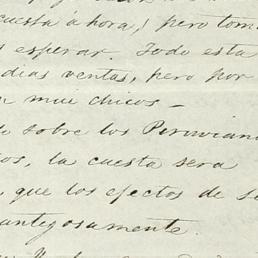 cuesta ahora! pero tom
s esperar. Todo esta
dias ventas, pero por
n mui chicos —
sobre los Peruviano
os, la cuesta sera
, que los efectos de s
antegosamente.